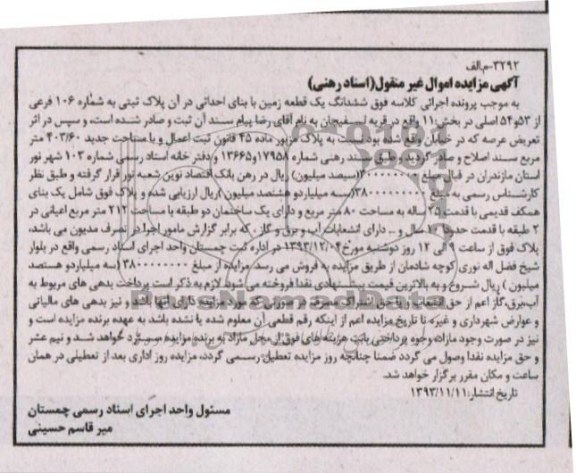 ۳۲۹۲-م.الف
آگهی مزایده اموال غیر منقول(اسناد رهنی)
به موجب پرونده اجرائی کلاسه فوق ششدانگ یک قطعه زمین با بنای احداثی در آن پلاک ثبتی به شماره ۱۰۶ فرعی
از ۵۳و۵۴ اصلی در بخش۱۱ واقع در قریه به نام آقای رضا پیام سند آن ثبت و صادر شده است، و سپس در اثر
تعریض عرصه که در خیابان واقع شده بود نسبت به پلاک مزبور ماده ۴۵ قانون ثبت اعمال و با مساحت جدید ۴۰۳/۶۰ متر
مربع سند اصلاح و صادر گردید، طبق سند رهنی شماره ۱۷۹۵۸و۱۳۶۶۵ دفتر خانه اسناد رسمی شماره ۱۰۳ شهر نور
استان مازندران در قبال مبلغ (سیصد میلیون) ریال در رهن بانک اقتصاد نوین شعبه نور قرار گرفته و طبق نظر
کارشناس رسمی به مبلغ (سه میلیاردو هشتصد میلیون )ریال ارزیابی شده و پلاک فوق شامل یک بنای
همکف قدیمی با قدمت ۲۵ ساله به مساحت ۸۰ متر مربع و دارای یک ساختمان دو طبقه با مساحت ۲۱۲ متر مربع اعیانی در
۲ طبقه با قدمت حدودا ۱۰ سال و .. دارای انشعابات آب و برق و گاز ، که برابر گزارش مامور اجرا در تصرف مدیون می باشد،
پلاک فوق از ساعت ۹ الی ۱۲ روز دوشنبه مورخ ۱۳۹۳/۱۲/۰۴ در اداره ثبت چمستان واحد اجرای اسناد رسمی واقع در بلوار
شیخ فضل اله نوری کوچه شادمان از طریق مزایده به فروش می رسد. مزایده از مبلغ (سه میلیاردو هستصد
میلیون ) ریال شروع و به بالاترین قیمت پیشنهادی نقدا فروخته می شود. لازم به ذکر است پرداخت بدهی های مربوط به
آب،برق،گاز اعم از حق انشعاب و یا حق اشتراک و مصرف در صورتی که مورد مزایده دارای آنها باشد و نیز بدهی های مالیاتی
و عوارض شهرداری و غیره تا تاریخ مزایده اعم از اینکه رقم قطعی آن معلوم شده یا نشده باشد به عهده برنده مزایده است و
نیز در صورت وجود مازاد، وجوه پرداختی بابت هزینه های فوق از محل مازاد به برنده مزایده مسترد خواهد شد و نیم عشر
و حق مزایده نقدا وصول می گردد ضمنا چنانچه روز مزایده تعطیل رسمی گردد، مزایده روز اداری بعد از تعطیلی در همان
ساعت و مکان مقرر برگزار خواهد شد.
تاریخ انتشار:۱۳۹۳/۱۱/۱۱
مسئول واحد اجرای اسناد رسمی چمستان
میر قاسم حسینی